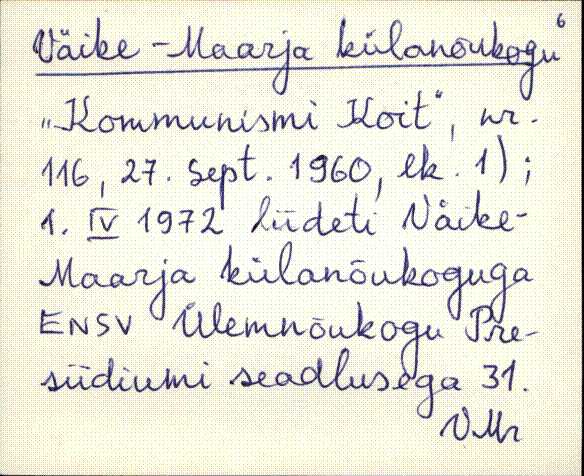 Väike-Maarja külanõukogu 6
„Kommunismi Koit“, nr.
116, 27. sept. 1960, lk. 1);
1. IV 1972 liideti Väike-
Maarja külanõukoguga
ENSV Ülemnõukogu Pre-
siidiumi seadlusega 31.
VMr